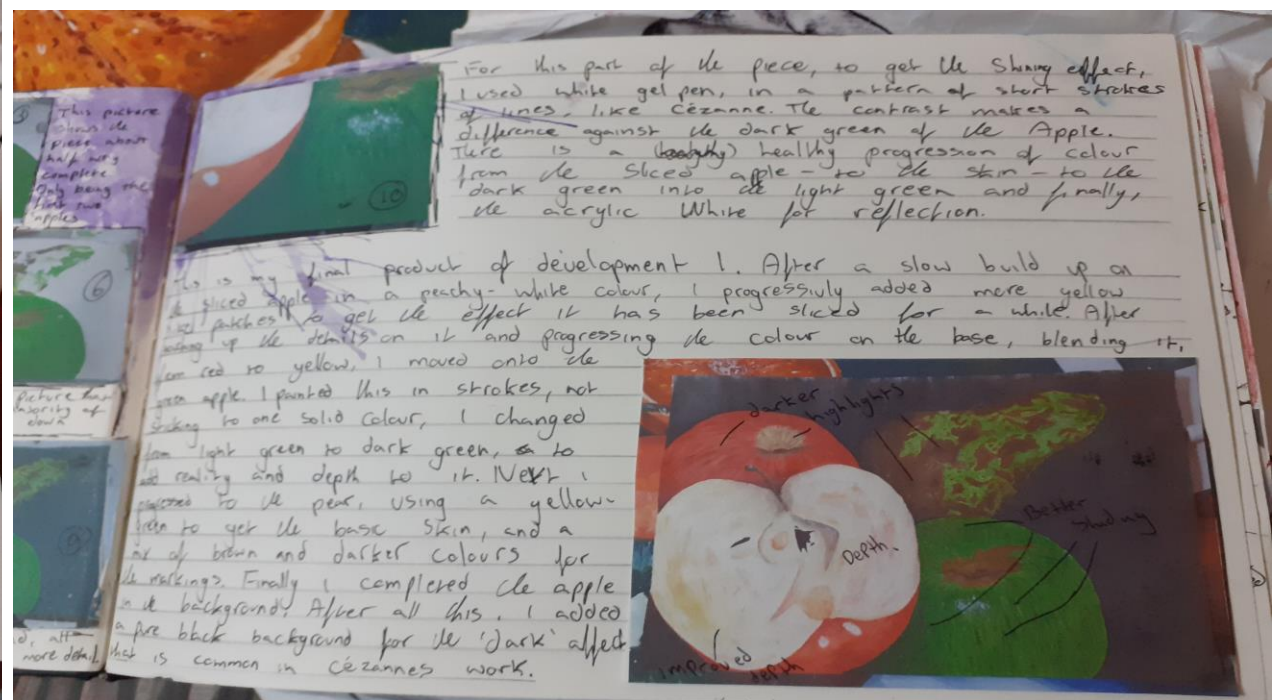 This picture
shows the
piece about
half way
complete.
Only being the
first two
apples
10
For this part of the piece, to get the Shining effect,
I used white gel pen, in a pattern of short strokes
of lines, like Cézanne. The contrast makes a
difference against the dark green of the Apple.
There is a healthy progression of colour
from the sliced apple - to the skin - to the
dark green into the light green and finally,
the acrylic White for reflection.
6
picture has
majority of
down
9
more detail
This is my final product of development 1. After a slow build up on
sliced apple in a peachy-white colour, I progressivly added more yellow
patches to get the effect it has been sliced for a while. After
up the details on it and progressing the colour on the base, blending it,
from red to yellow, I moved onto the
green apple. I painted this in strokes, not
sticking to one solid colour, I changed
from light green to dark green, to
add reality and depth to it. Next I
progressed to the pear, using a yellow-
green to get the basic skin, and a
mix of brown and darker colours for
the markings. Finally I completed the apple
in the background. After all this, I added
a pure black background for the 'dark' affect
that is common in Cézannes work.
darker
highlights
Better
shading
Depth.
improved
depth